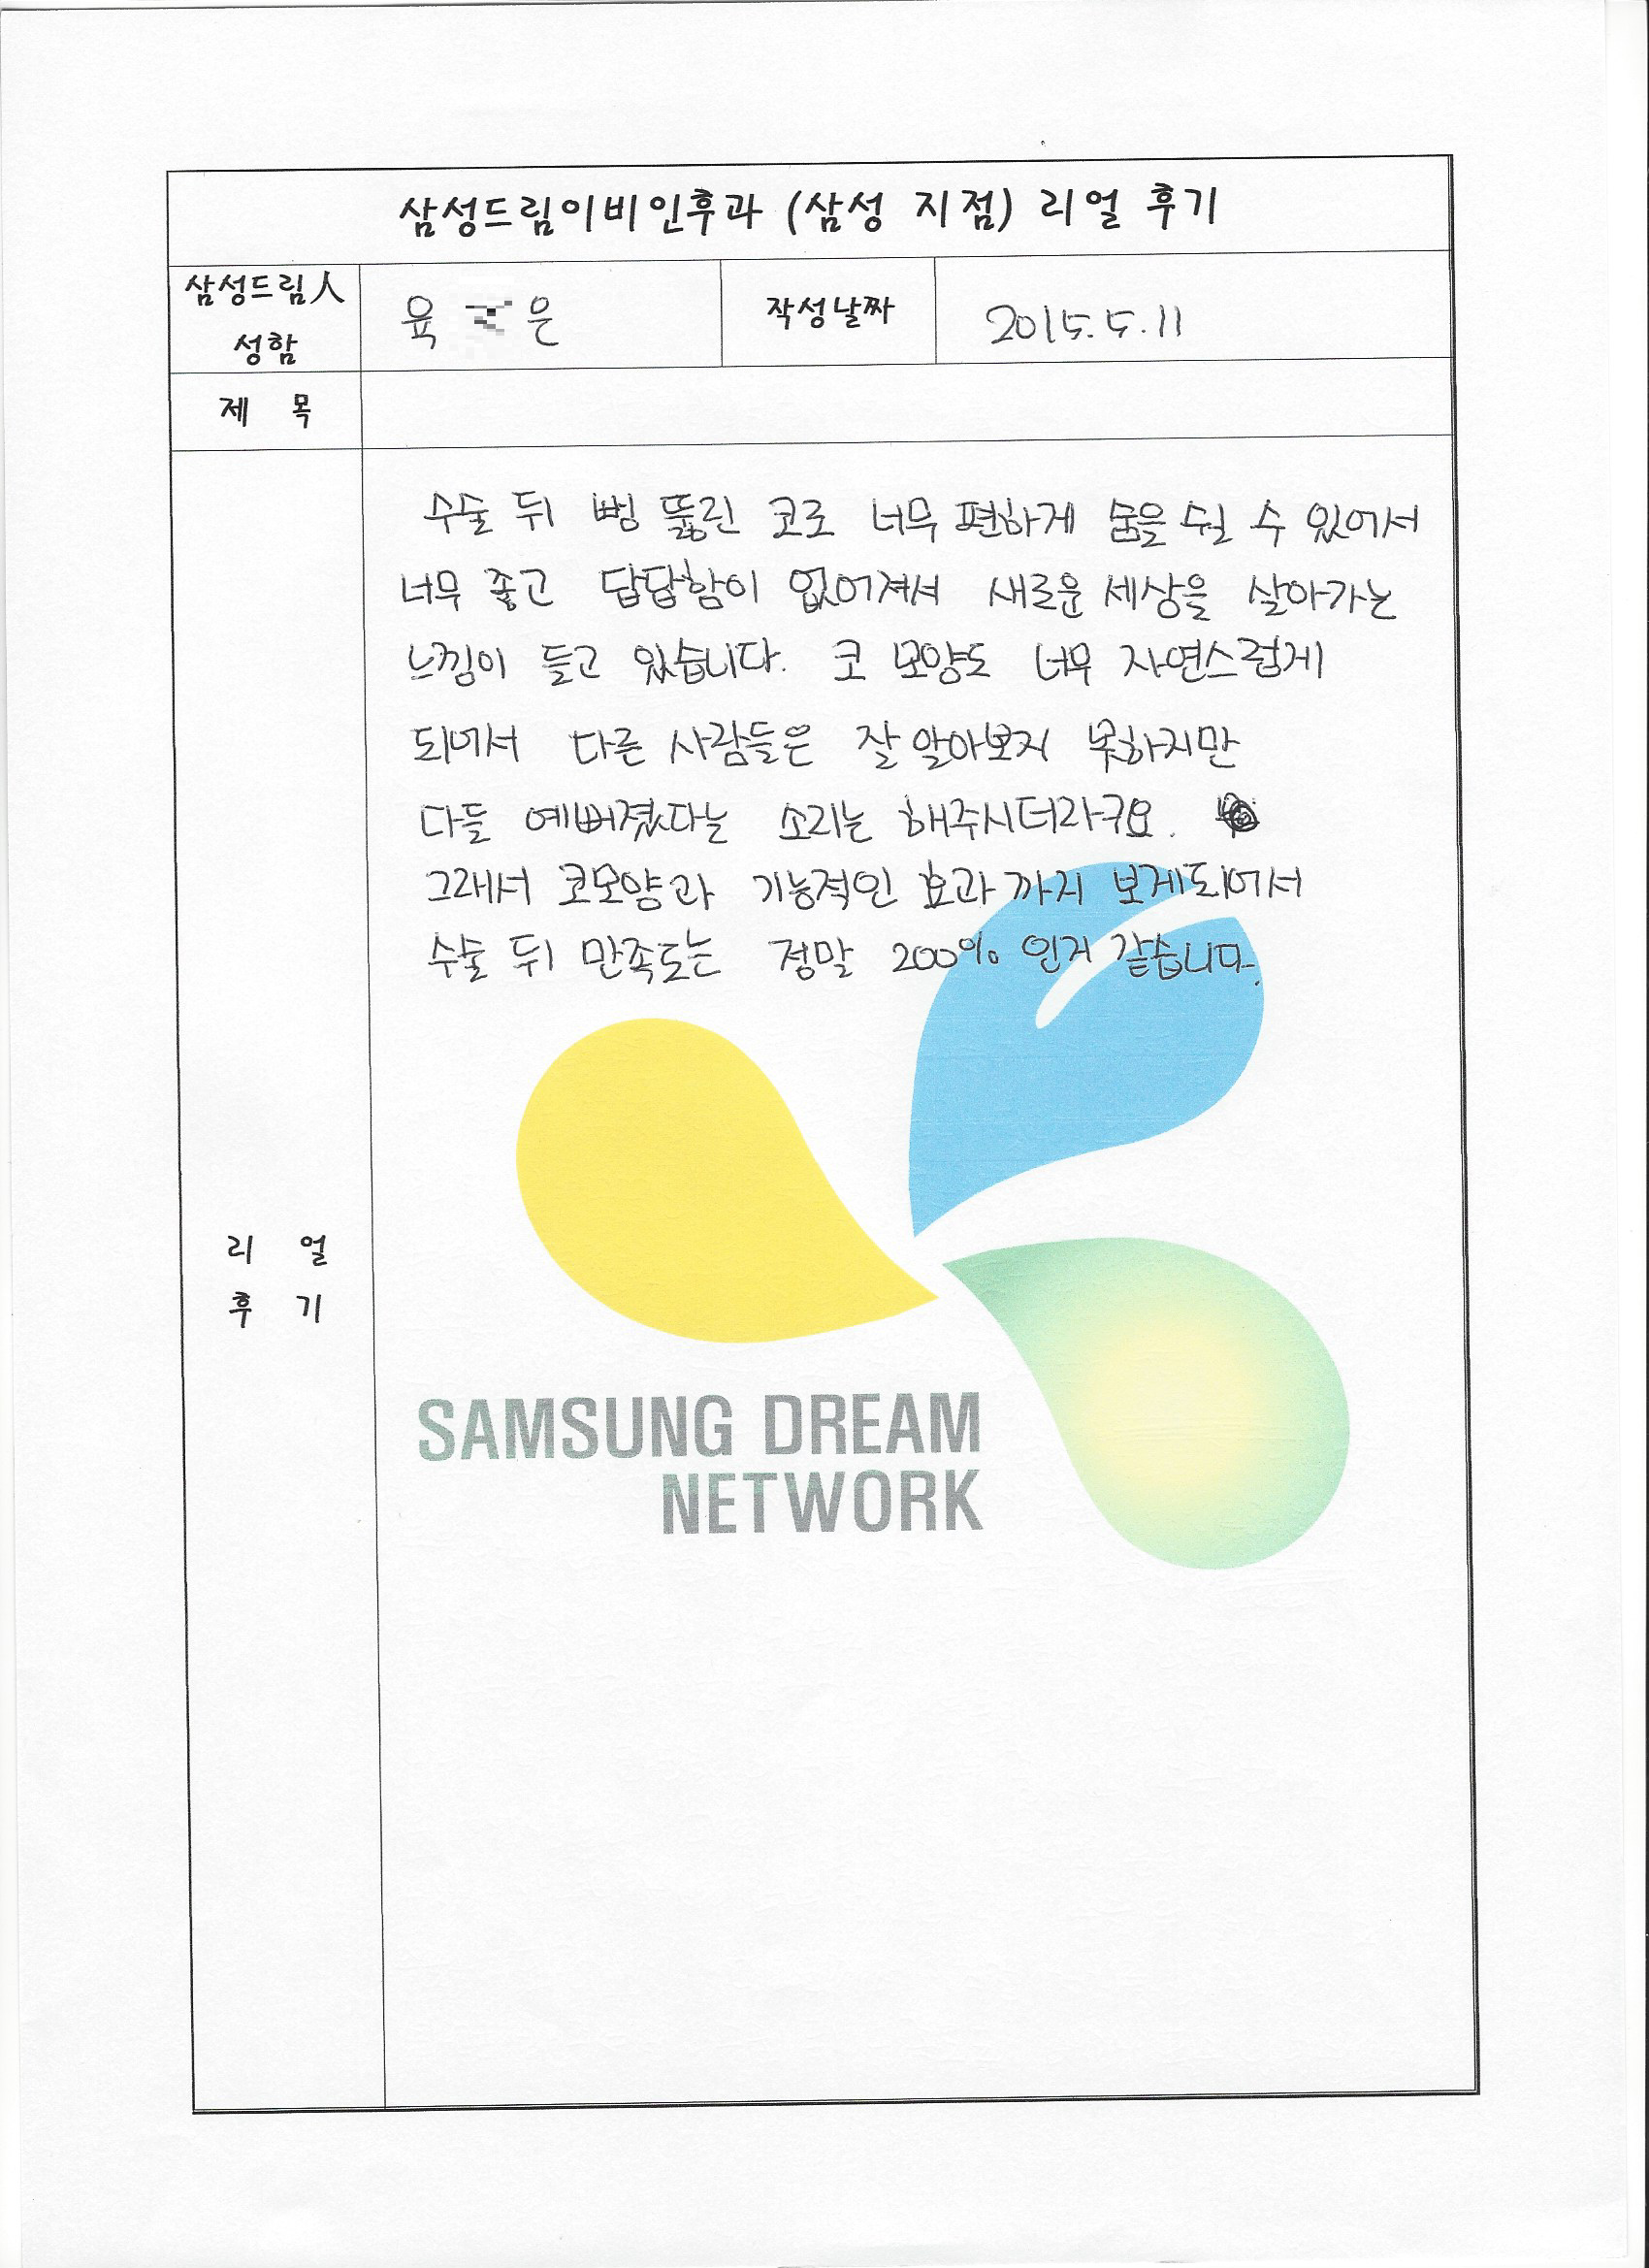 삼성드림이비인후과 (삼성 지점) 리얼 후기
삼성드림人
성함
육 은
작성날짜
2015.5.11
제 목
수술 뒤 뻥 뚫린 코로 너무 편하게 숨을 쉴 수 있어서
너무 좋고 답답함이 없어져셔 새로운 세상을 살아가는
느낌이 들고 있습니다. 코 모양도 너무 자연스럽게
되어서 다른 사람들은 잘 알아보지 못하지만
다들 예뻐졌다는 소리는 해주시더라구요.
그래서 코모양과 기능적인 효과 까지 보게되어서
수술 뒤 만족도는 정말 200% 인거 같습니다.
리 얼
후 기
SAMSUNG DREAM
NETWORK